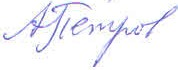 АПетров